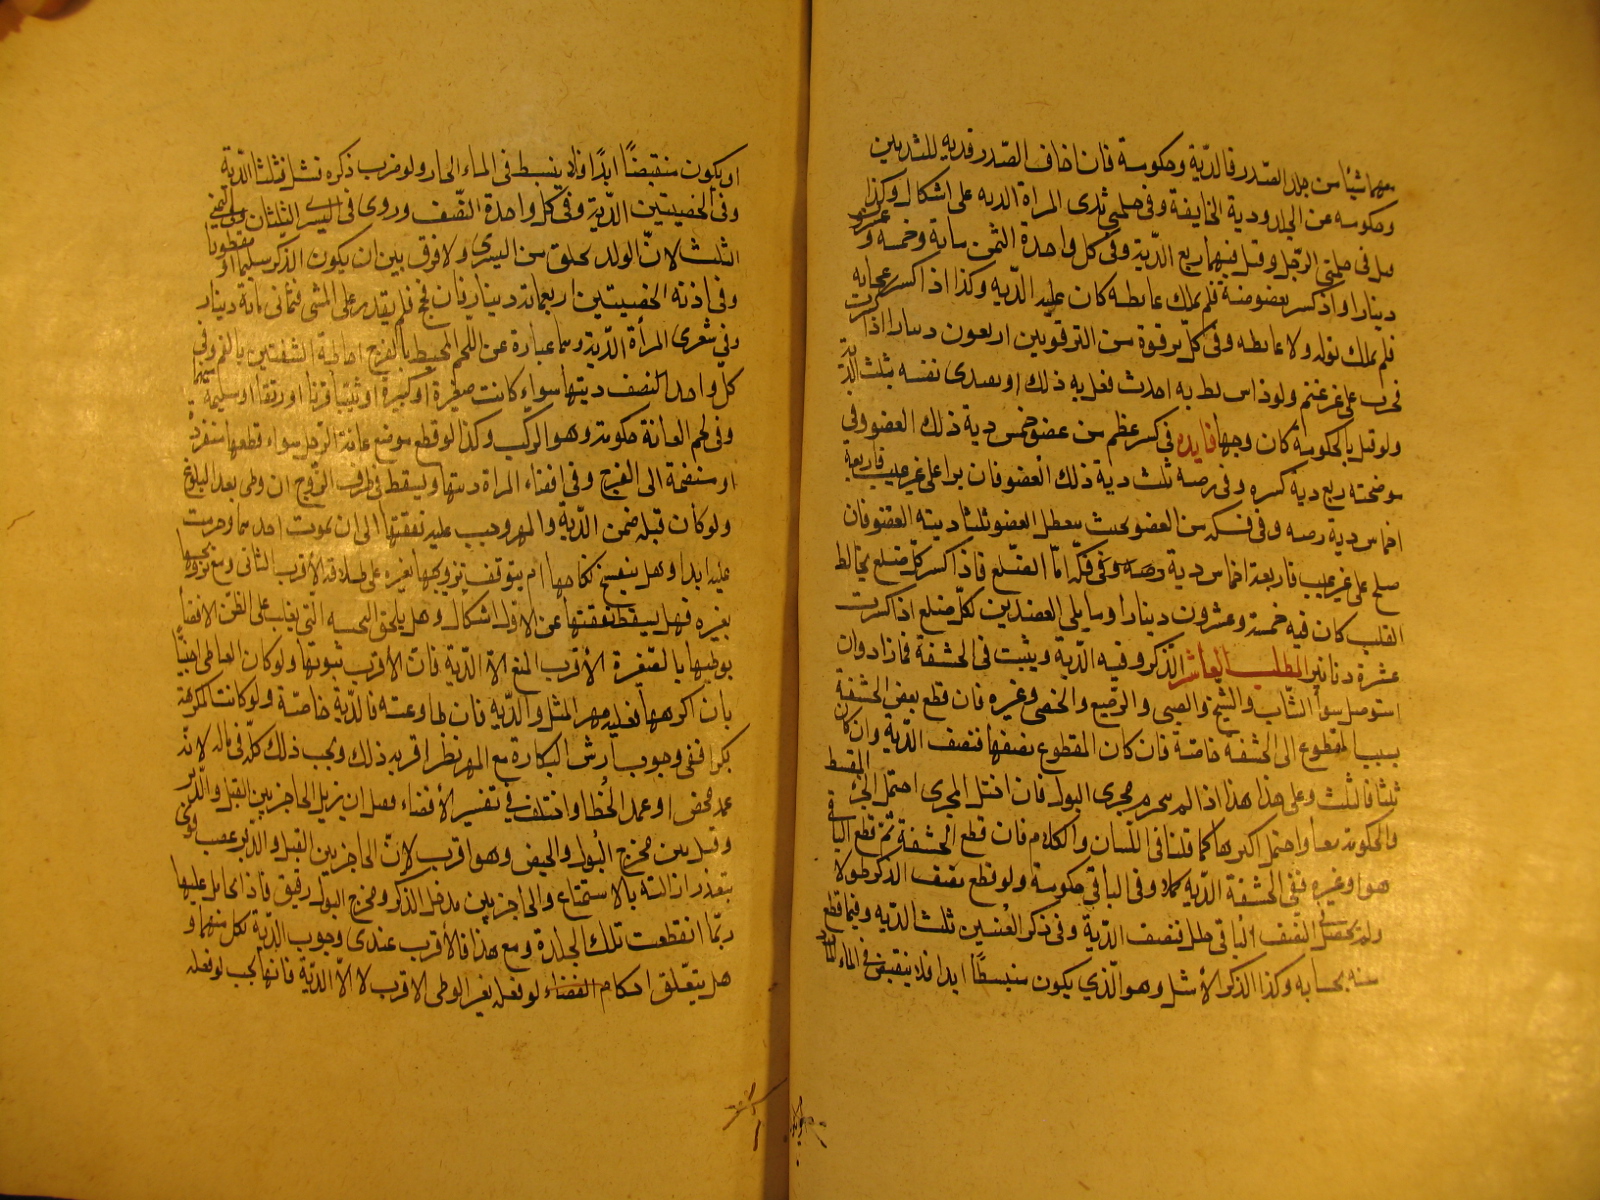 معهما شيئا من جلد الصدر فالدية وحكومة فان اخاف الصدر فدية للثديين
وحكومه عن الجلد ودية الخايفة وفى حلمتى ثدى المراة الديه على اشكال وكذا
قيل فى حلمتى الرجل وقيل فيهما ربع الدية وفى كل واحدة الثمن ماية وخمسه وعشرون
دينارا واذ كسر بعضوضة فلم يملك غايطه كان عليه الدية وكذا اذا كسر عجانه
فلم يملك بوله ولا غايطه وفى كل ترقوة من الترقوتين اربعون دينارا اذا كسرت
فجرب على غير عثم ولو داس بطنه احدث فعل به ذلك او يفدى نفسه بثلث الدية
ولو قيل بالحكومة كان وجها فايده فى كسر عظم من عضو خمس دية ذلك العضو وفى
موضحته ربع دية كسره وفى رضه ثلث دية ذلك العضو فان برا على غير عيب فاربعة
اخماس دية رضه وفى فكه من العضو بحيث يتعطل العضو ثلثا ديته العضو فان
صلح على غير عيب فاربعة اخماس دية فكه اما الضلع فاذا كسر كل ضلع يخالط
القلب كان فيه خمسة وعشرون دينارا وما يلى العضدين لكل ضلع اذا كسرت
عشرة دنانير المطلب العاشر الذكر وفيه الدية ويثبت فى الحشفة فما زاد وان
استوصل سوا الشاب والشيخ والصبى والرضيع والخصى وغيره فان قطع بعض الحشفة
نسب المقطوع الى الحشفه خاصة فان كان المقطوع نصفها فنصف الدية وان كان
ثلثا فالثلث وعلى هذا هذا اذا لم ينخرم مجرى البول فان اختل المجرى احتمل المقسط
والحكومة معا واحتمل اكثرهما كما قلنا فى اللسان والكلام فان قطع الحشفة ثم قطع الباقى
هو او غيره ففى الحشفة الدية كملا وفى الباقى حكومة ولو قطع نصف الذكر طولا
ولم يحصل فى النصف الباقى خلل فنصف الدية وفى ذكر العنين ثلث الديه وفيما قطع
منه بحسابه وكذا الذكر الاشل وهو الذي يكون منبسطا ابدا فلا ينقبض فى الماء البارد
او يكون منقبضا ابدا فلا ينبسط فى الماء الحار ولو ضرب ذكره فشل فثلثا الدية
وفى الخصيتين الدية وفى كل واحدة النصف وروى فى اليسرى الثلثان وفى اليمنى
الثلث لان الولد يخلق من اليسرى ولا فرق بين ان يكون الذكر سليما او مقطوعا
وفى ادرة الخصيتين اربعماية دينار فان فحج فلم يقدر على المشى فثمانى مائة دينار
وفي شفرى المرأة الدية وهما عبارة عن اللحم المحيط بالفرج احاطة الشفتين بالفم وفى
كل واحد نصف ديتها سواء كانت صغيرة او كبيرة او ثيبا قرنا او رتقا او سليمة
وفى لحم العانة حكومة وهو الركب وكذا لو قطع موضع عانة الرجل سواء قطعهما منفردة
او منضمة الى الفرج وفى افضاء المراة ديتها ويسقط فى طرف الزوج ان وطى بعد البلوغ
ولو كان قبله ضمن الدية والمهر وجب عليه نفقتها الى ان يموت احدهما وحرمت
عليه ابدا وهل ينفسخ نكاحها ام يتوقف تزويجها بغيره على طلاقه الاقرب الثانى ومع تزويجها
بغيره فهل يسقط نفقتها عن الاول اشكال وهل يلحق التى يغلب على الظن الافضاء
بوطيها بالصغيرة الاقرب المنع الا الدية فان الاقرب ثبوتها ولو كان الواطى اجنبيا
بان اكرهها فعليه مهر المثل والدية فان طاوعته فالدية خاصة ولو كانت المكرهة
بكرا ففى وجوب ارش البكارة مع المهر نظر اقربه ذلك ويجب ذلك كله فى ماله لانه
عمد محض او عمد الخطا واختلف في تفسير الافضاء فقيل ان يزيل الحاجز بين القبل والدبر
وقيل بين مخرج البول والحيض وهو اقرب لان الحاجز بين القبل والدبر عصب قوى
يتعذر ازالته بالاستمتاع والحاجز بين مدخل الذكر ومخرج البول رقيق فاذا تحامل عليها
ربما انقطعت تلك الجلدة ومع هذا فالاقرب عندى وجوب الدية لكل منهما و
هل يتعلق احكام الفضاء لو فعله بغير الوطى الاقرب لا الا الدية فانها تجب لو فعله